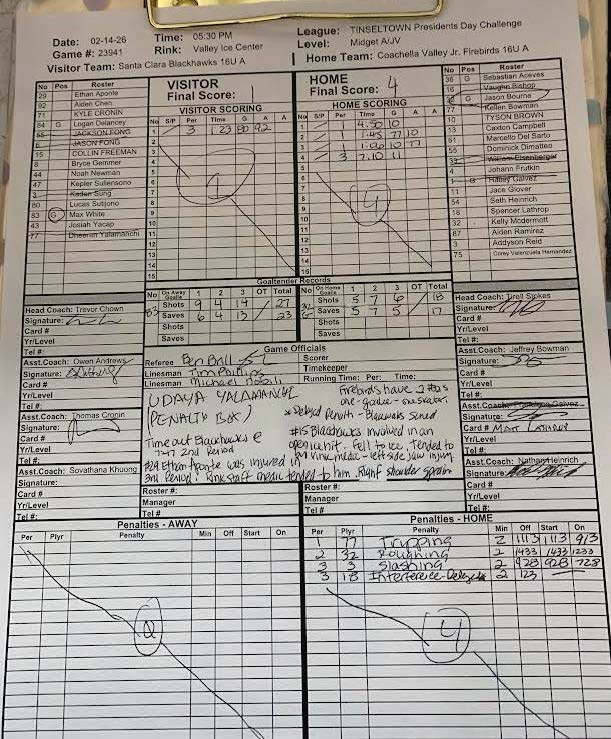 Date: 02-14-26 Time: 05:30 PM League: TINSELTOWN Presidents Day Challenge
Game #: 23941 Rink: Valley Ice Center Level: Midget A/JV
Visitor Team: Santa Clara Blackhawks 16U A Home Team: Coachella Valley Jr. Firebirds 16U A
No Pos Roster
29 Ethan Aponte
92 Aiden Chen
71 KYLE CRONIN
84 G Logan Delancey
55 JACKSON FONG
6 JASON FONG
15 COLLIN FREEMAN
8 Bryce Gemmer
44 Noah Newman
47 Kepler Sullensono
3 Kaden Sung
80 Lucas Sutijono
83 G Max White
43 Josiah Yacap
77 Dheeran Yalamanchi
VISITOR
Final Score: 1
VISITOR SCORING
S/P Per Time G A A
1 3 1:23 80 92
2
3
4
5
6
7
8
9
10
11
12
13
14
15
1
HOME
Final Score: 4
HOME SCORING
S/P Per Time G A A
1 1 4:50 10
2 1 1:45 77 10
3 1 1:06 10 77
4 3 7:10 11
5
6
7
8
9
10
11
12
13
14
15
4
No Pos Roster
36 G Sebastian Aceves
16 Vaughn Bishop
G Jason Bourne
77 Kellen Bowman
10 TYSON BROWN
13 Caxton Campbell
61 Marcello Del Sarto
55 Dominick Dimatteo
33 William Eisenberger
4 Johann Frutkin
1 G Hailey Galvez
11 Jace Glover
54 Seth Heinrich
18 Spencer Lathrop
32 Kelly Modermott
87 Aiden Ramirez
3 Addyson Reid
75 Corey Valenzuela Hernandez
Goaltender Records
No On Away Goalie 1 2 3 OT Total
83 Shots 9 4 14 / 27
Saves 6 4 13 / 23
Shots
Saves
No On Home Goalie 1 2 3 OT Total
Shots 5 7 6 / 18
Saves 5 7 5 / 17
Shots
Saves
Head Coach: Trevor Chown
Signature:
Card #
Yr/Level
Tel #:
Asst.Coach: Owen Andrews
Signature:
Card #
Yr/Level
Tel #:
Asst.Coach: Thomas Cronin
Signature:
Card #
Yr/Level
Tel #:
Asst.Coach: Sovathana Khuong
Signature:
Card #
Yr/Level
Tel #:
Game Officials
Referee Ben Ball Scorer
Linesman Tim Phillips Timekeeper
Linesman Michael Running Time: Per: Time:
UDAYA YALAMANCHI
(PENALTY BOX)
Time out Blackhawks @
7:47 2nd Period
#29 Ethan Aponte was injured in
3rd Period. Rink staff medic tended to him. Right shoulder sprain
Firebirds have 2 #3s
one-goalie-one skater.
*Delayed Penalty - Blackhawks Scored
#15 Blackhawks involved in an
open ice hit. Fell to ice. Tended to
by rink medic - left side jaw injury.
Roster #:
Manager
Tel #:
Roster #:
Manager
Tel #:
Head Coach: Tirell Stokes
Signature:
Card #
Yr/Level
Tel #:
Asst.Coach: Jeffrey Bowman
Signature:
Card #
Yr/Level
Tel #:
Asst.Coach: Galvez
Signature:
Card # MATT LATHROP
Yr/Level
Tel #:
Asst.Coach: Nathan Heinrich
Signature:
Card #
Yr/Level
Tel #:
Penalties - AWAY
Per Plyr Penalty Min Off Start On
0
Penalties - HOME
Per Plyr Penalty Min Off Start On
1 77 Tripping 2 1113 1113 913
2 32 Roughing 2 1433 1433 1233
3 3 Slashing 2 928 928 728
3 18 Interference-Delayed 2 123
4